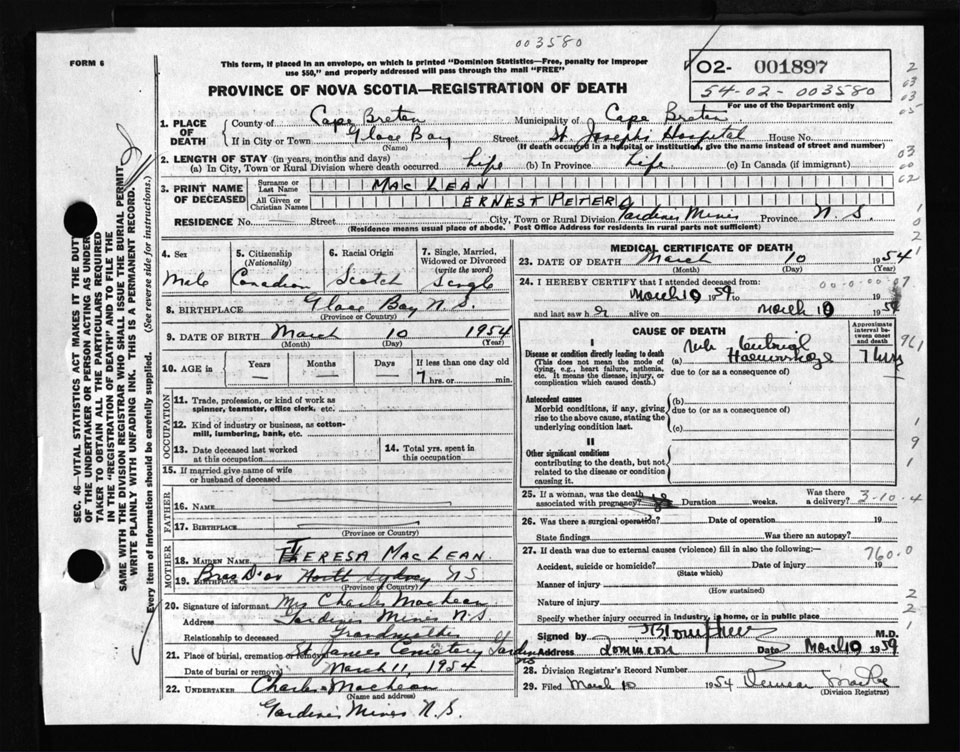 003580
FORM 6
This form, if placed in an envelope, on which is printed "Dominion Statistics—Free, penalty for improper
use $50," and properly addressed will pass through the mail "FREE"
O2- 001897
54-02-003580
For use of the Department only
PROVINCE OF NOVA SCOTIA—REGISTRATION OF DEATH
1. PLACE OF DEATH
County of Cape Breton Municipality of Cape Breton
If in City or Town Glace Bay Street St. Josephs Hospital House No.
(Name) (If death occurred in a hospital or institution, give the name instead of street and number)
2. LENGTH OF STAY (in years, months and days)
(a) In City, Town or Rural Division where death occurred Life (b) In Province Life (c) In Canada (if immigrant)
3. PRINT NAME OF DECEASED
Surname or Last Name MAC LEAN
All Given or Christian Names ERNEST PETER
RESIDENCE No. Street City, Town or Rural Division Gardiner Mines Province N.S.
(Residence means usual place of abode. Post Office Address for residents in rural parts not sufficient)
4. Sex
Male
5. Citizenship (Nationality)
Canadian
6. Racial Origin
Scotch
7. Single, Married, Widowed or Divorced (write the word)
Single
8. BIRTHPLACE Glace Bay N.S.
(Province or Country)
9. DATE OF BIRTH March 10 1954
(Month) (Day) (Year)
10. AGE in Years Months Days If less than one day old
7 hrs. or min.
OCCUPATION
11. Trade, profession, or kind of work as spinner, teamster, office clerk, etc.
12. Kind of industry or business, as cotton-mill, lumbering, bank, etc.
13. Date deceased last worked at this occupation
14. Total yrs. spent in this occupation
15. If married give name of wife or husband of deceased
FATHER
16. Name
17. Birthplace
MOTHER
18. MAIDEN NAME THERESA MAC LEAN
19. Birthplace Bras D'or North Sydney NS
(Province or Country)
20. Signature of informant Mrs Charles MacLean
Address Gardiner Mines N.S.
Relationship to deceased Grandmother
21. Place of burial, cremation or removal St. James Cemetery
Date of burial or removal March 11, 1954
22. UNDERTAKER Charles MacLean
(Name and address)
Gardiner Mines N.S.
MEDICAL CERTIFICATE OF DEATH
23. DATE OF DEATH March 10 1954
(Month) (Day) (Year)
24. I HEREBY CERTIFY that I attended deceased from
March 10 1954 to March 10 1954
and last saw h alive on
CAUSE OF DEATH
Approximate interval between onset and death
I
Disease or condition directly leading to death (a)
(This does not mean the mode of dying, e.g., heart failure, asthenia, etc. It means the disease, injury, or complication which caused death.)
Haemorrhage 7 hrs
due to (or as a consequence of)
Antecedent causes
Morbid conditions, if any, giving rise to the above cause, stating the underlying condition last.
(b)
due to (or as a consequence of)
(c)
II
Other significant conditions
contributing to the death, but not related to the disease or condition causing it.
25. If a woman, was the death associated with pregnancy? Duration weeks. Was there a delivery?
3-10-4
26. Was there a surgical operation? Date of operation 19
State findings Was there an autopsy?
27. If death was due to external causes (violence) fill in also the following:—
760.0
Accident, suicide or homicide? Date of injury 19
(State which)
Manner of injury
(How sustained)
Nature of injury
Specify whether injury occurred in industry, in home, or in public place
Signed by M.D.
Address Dominion Date March 10 1954
28. Division Registrar's Record Number
29. Filed March 10 1954
(Division Registrar)
SEC. 46—VITAL STATISTICS ACT MAKES IT THE DUTY
OF THE UNDERTAKER OR PERSON ACTING AS UNDER-
TAKER TO OBTAIN ALL THE PARTICULARS REQUIRED
IN THE "REGISTRATION OF DEATH" AND TO FILE THE
SAME WITH THE DIVISION REGISTRAR WHO SHALL ISSUE THE BURIAL PERMIT
WRITE PLAINLY WITH UNFADING INK. THIS IS A PERMANENT RECORD.
Every item of information should be carefully supplied. (See reverse side for instructions.)